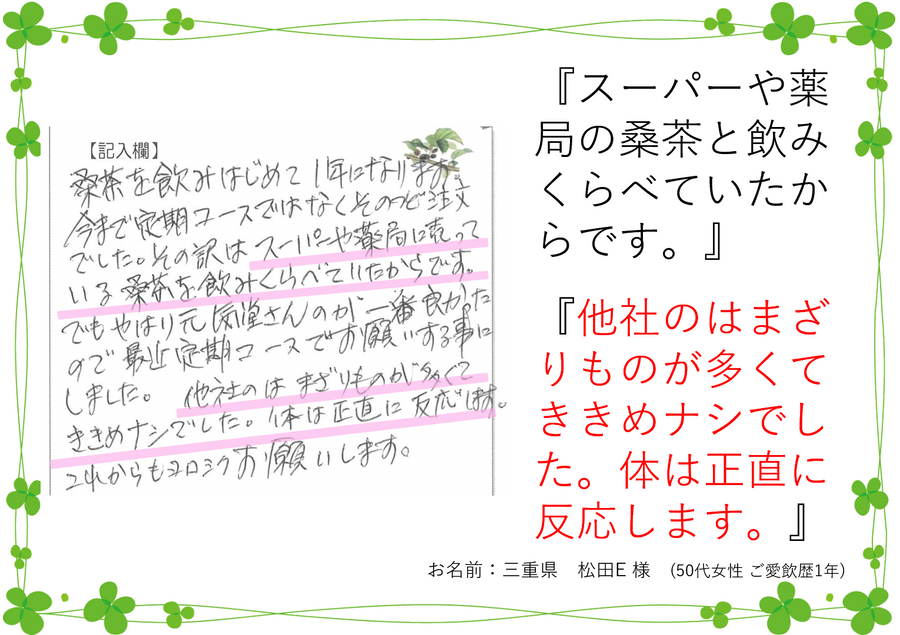 【記入欄】
桑茶を飲みはじめて1年になります。
今まで定期コースではなくそのつど注文
でした。その訳はスーパーや薬局に売って
いる桑茶を飲みくらべていたからです。
でもやはり元気堂さんのが一番良かった
ので最近定期コースでお願いする事に
しました。他社のはまざりものが多くて
ききめナシでした。体は正直に反応します。
これからもヨロシクお願いします。
『スーパーや薬
局の桑茶と飲み
くらべていたか
らです。』
『他社のはまざ
りものが多くて
ききめナシでし
た。体は正直に
反応します。』
お名前：三重県　松田E 様　(50代女性 ご愛飲歴1年)